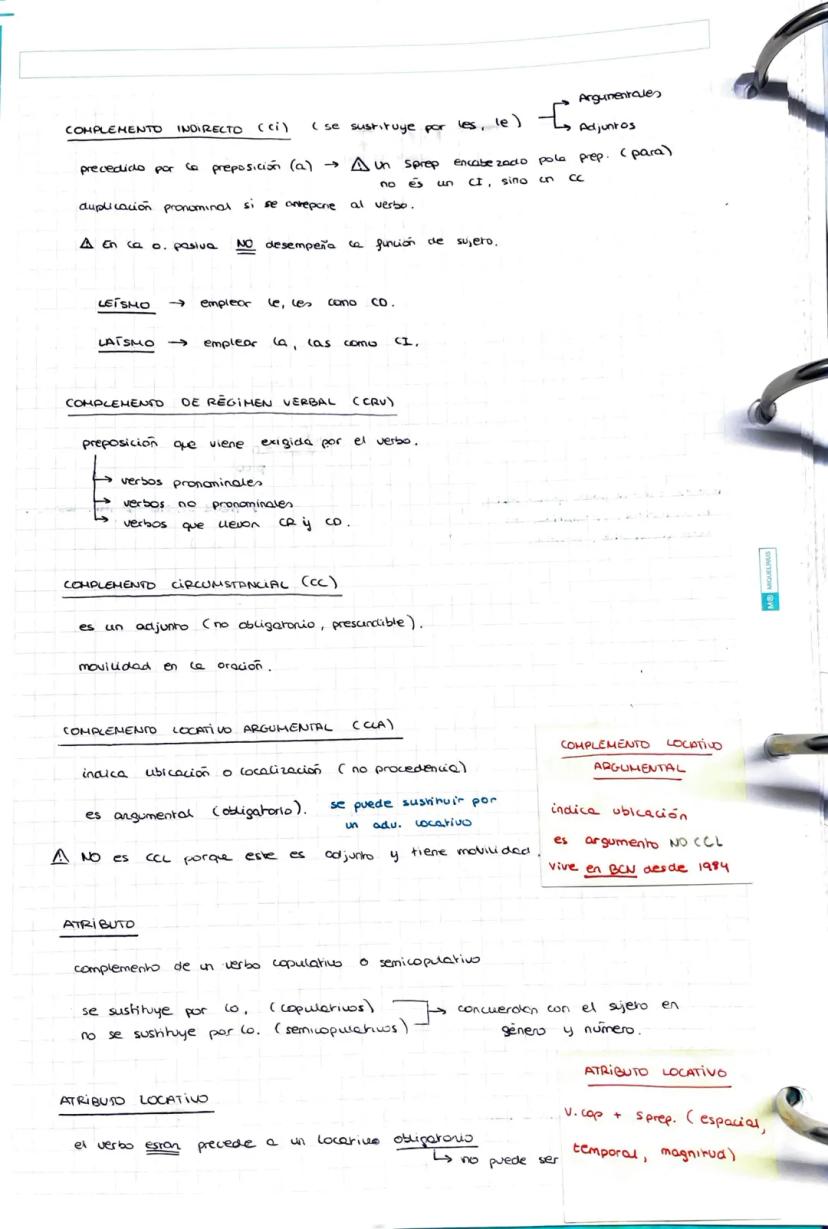 COMPLEMENTO INDIRECTO (Ci) (se sustituye por les, le) → Argumentales
→ Adjuntos
precedido por la preposición (a) → ⚠ un sprep encabezado pola prep. (para)
no es un CI, sino un CC
duplicación pronominal si se antepone al verbo.
⚠ En la o. pasiva NO desempeña la función de sujeto.
LEÍSMO → emplear le, les como CD.
LAÍSMO → emplear la, las como CI.
COMPLEMENTO DE RÉGIMEN VERBAL (CRV)
preposición que viene exigida por el verbo.
→ verbos pronominales
→ verbos no pronominales
→ verbos que llevan CR y CD.
COMPLEMENTO CIRCUMSTANCIAL (CC)
es un adjunto (no obligatorio, prescindible).
movilidad en la oración.
COMPLEMENTO LOCATIVO ARGUMENTAL (CLA)
indica ubicación o localización (no procedencia)
es argumental (obligatorio). se puede sustituir por
un adv. locativo
⚠ NO es CCL porque este es adjunto y tiene movilidad.
COMPLEMENTO LOCATIVO
ARGUMENTAL
indica ubicación
es argumento NO CCL
vive en BCN desde 1984
MR MIQUELRIUS
ATRIBUTO
complemento de un verbo copulativo o semicopulativo
se sustituye por lo, (copulativos) → concuerdan con el sujeto en
no se sustituye por lo. (semicopulativos) género y número.
ATRIBUTO LOCATIVO
el verbo estar precede a un locativo obligatorio
↳ no puede ser
ATRIBUTO LOCATIVO
V. cop + sprep. (espacial,
temporal, magnitud)